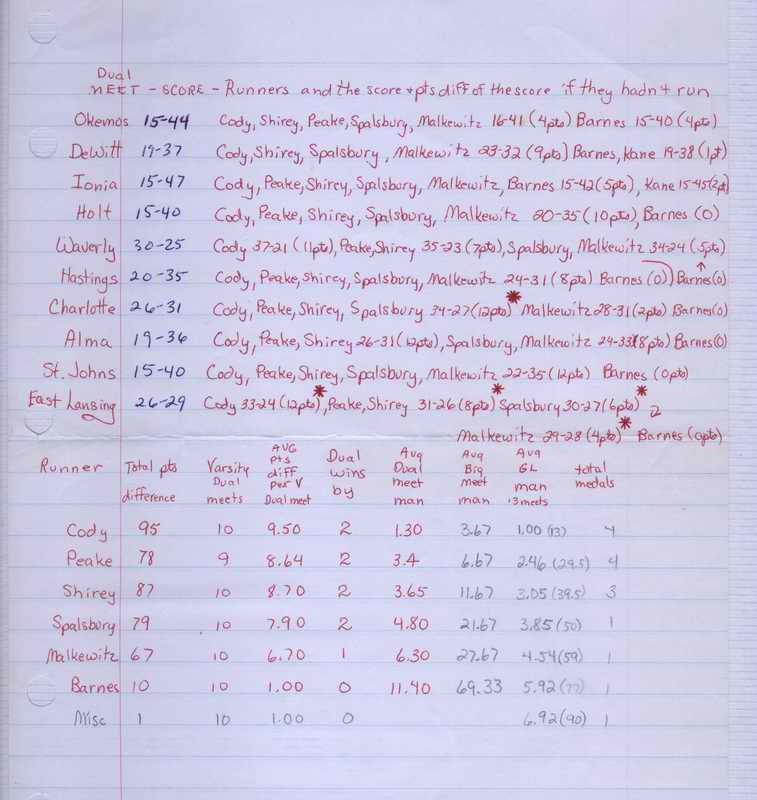 Dual
MEET - SCORE - Runners and the score + pts diff of the score if they hadnt run
Okemos 15-44 Cody, Shirey, Peake, Spalsbury, Malkewitz 16-41 (4pts) Barnes 15-40 (4pts)
DeWitt 19-37 Cody, Shirey, Spalsbury, Malkewitz 23-32 (9pts) Barnes, Kane 19-38 (1pt)
Ionia 15-47 Cody, Peake, Shirey, Spalsbury, Malkewitz, Barnes 15-42 (5pts), Kane 15-45 (2pt)
Holt 15-40 Cody, Peake, Shirey, Spalsbury, Malkewitz 20-35 (10pts), Barnes (0)
Waverly 30-25 Cody 37-21 (11pts), Peake, Shirey 35-23 (7pts), Spalsbury, Malkewitz 34-24 (5pts)
Hastings 20-35 Cody, Peake, Shirey, Spalsbury, Malkewitz 24-31 (8pts) Barnes (0) Barnes (0)
Charlotte 26-31 Cody, Peake, Shirey, Spalsbury 34-27 (12pts)* Malkewitz 28-31 (2pts) Barnes (0)
Alma 19-36 Cody, Peake, Shirey 26-31 (12pts), Spalsbury, Malkewitz 24-33 (8pts) Barnes (0)
St. Johns 15-40 Cody, Peake, Shirey, Spalsbury, Malkewitz 22-35 (12pts) Barnes (0pts)
East Lansing 26-29 Cody 33-24 (12pts)*, Peake, Shirey 31-26 (8pts)* Spalsbury 30-27 (6pts)*
Malkewitz 29-28 (4pts)* Barnes (0pts)
Runner Total pts difference Varsity Dual meets AVG pts diff per V Dual meet Dual wins by Avg Dual meet man Avg Big meet man Avg GL man 13 meets total medals
Cody 95 10 9.50 2 1.30 3.67 1.00 (13) 4
Peake 78 9 8.64 2 3.4 6.67 2.46 (29.5) 4
Shirey 87 10 8.70 2 3.65 11.67 3.05 (39.5) 3
Spalsbury 79 10 7.90 2 4.80 21.67 3.85 (50) 1
Malkewitz 67 10 6.70 1 6.30 27.67 4.54 (59) 1
Barnes 10 10 1.00 0 11.40 69.33 5.92 (77) 1
Misc 1 10 1.00 0 6.92 (90) 1